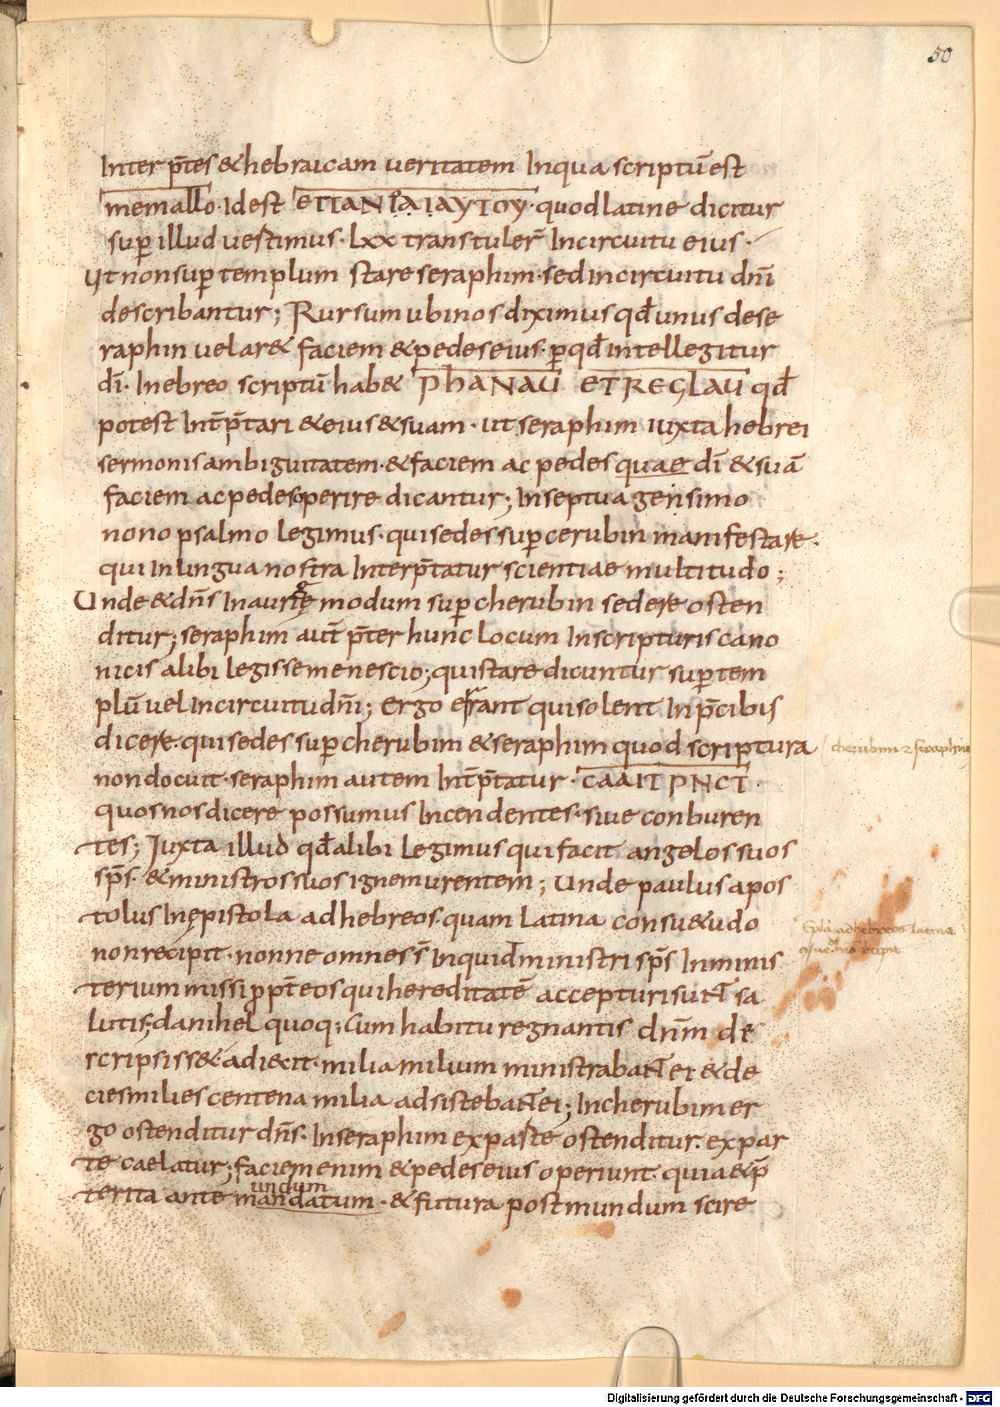 50
Inter p̄tes & hebraicam veritatem Inqua scriptū est
memallo · Idest ΕΠΑΝ · quod latine dicitur
sup̄ illud vestimus · Lxx transtuler̄ Incircuitu eius ·
Ut non sup̄ templum stare seraphim · sed incircuitu dn̄i
describantur ; Rursum ubi nos diximus qđ unus dese
raphin velar& faciem & pedes eius · p̄ qđ intellegitur
dī · Inebreo scriptū hab& PhANAU ETREGLAU qđ
potest Int̄p̄tari & eius & suam · ut seraphim iuxta hebrei
sermonis ambiguitatem · & faciem ac pedes quae dī & suā
faciem ac pedes operire dicantur ; Inseptuagensimo
nono psalmo legimus · qui sedes sup̄ cerubin manifestare ·
qui Inlingua nostra Interp̄tatur scientiae multitudo ;
Unde & dn̄s Inaurige modum sup̄ cherubin sedere osten
ditur ; seraphim aut̄ p̄ter hunc locum Inscripturis cano
nicis alibi legisse me nescio ; qui stare dicuntur sup̄ tem
plū vel Incircuitu dn̄i ; Ergo errant qui solent Inp̄cibis
dicere · qui sedes sup̄ cherubim & seraphim quod scriptura
cherubim & seraphim
non docuit · seraphim autem Int̄p̄tatur ·
quos nos dicere possumus Incendentes · sive conburen
tes ; Iuxta illud qđ alibi legimus qui facit angelos suos
sp̄s · & ministros suos ignem urentem ; Unde paulus apos
tolus Inepistola ad hebreos · quam Latina consu&udo
non recipit · nonne omnes s̄ Inquid ministri sp̄s Inminis
terium missi pp̄t eos qui hereditatē accepturi sunt sa
lutis ; danihel quoq; cum habitu regnantis dnm̄ de
scripsiss& · adiecit · milia milium ministrabant ei & de
cies milies centena milia adsistebant ei ; Incherubim er
go ostenditur dn̄s · Inseraphim ex parte ostenditur · ex par
te caelatur ; faciem enim & pedes eius operiunt · quia & p̄
undum
terita ante mandatum · & futura post mundum scire
Digitalisierung gefördert durch die Deutsche Forschungsgemeinschaft - DFG